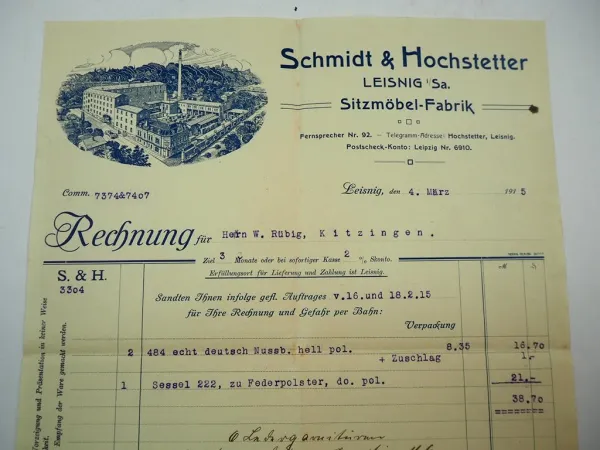 Schmidt & Hochstetter
LEISNIG i/Sa.
Sitzmöbel-Fabrik
Fernsprecher Nr. 92. — Telegramm-Adresse: Hochstetter, Leisnig.
Postscheck-Konto: Leipzig Nr. 6910.
Comm. 7374&7407
Leisnig, den 4. März 1915
Rechnung für Herrn W. Rübig, Kitzingen.
Ziel 3 Monate oder bei sofortiger Kasse 2 % Skonto.
Erfüllungsort für Lieferung und Zahlung ist Leisnig.
S. & H.
3304
Sandten Ihnen infolge gefl. Auftrages v.16.und 18.2.15
für Ihre Rechnung und Gefahr per Bahn:
Verpackung
2 484 echt deutsch Nussb. hell pol. 8.35 16.70
+ Zuschlag 1.-
1 Sessel 222, zu Federpolster, do. pol. 21.-
38.70
6 Ledergarnituren
und Präsentation in keiner Weise
Empfang der Ware gemacht werden.